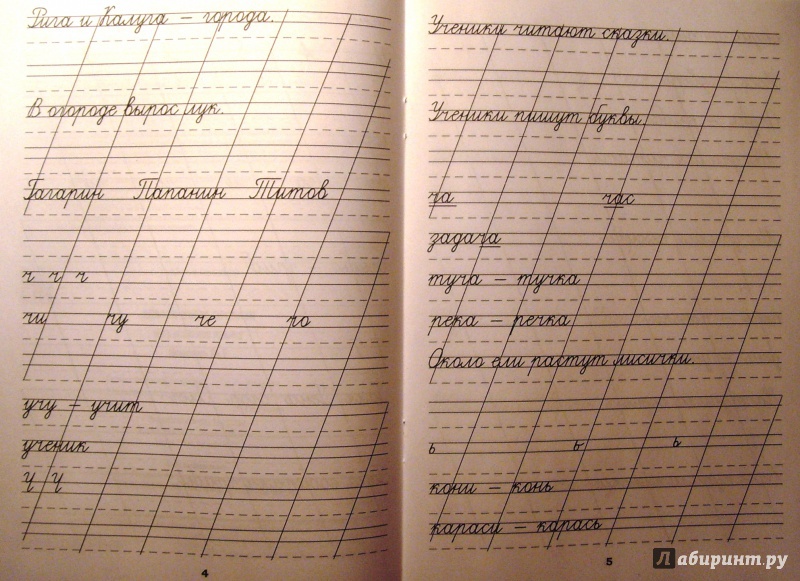 Рига и Калуга – города.
В огороде вырос лук.
Гагарин Папанин Титов
ч ч ч
чи чу че чо
учу – учит
ученик
Ч Ч
4
Ученики читают сказки.
Ученики пишут буквы.
ча час
задача
туча – тучка
река – речка
Около ели растут лисички.
ь ь ь
кони – конь
караси – карась
5
Лабиринт.ру